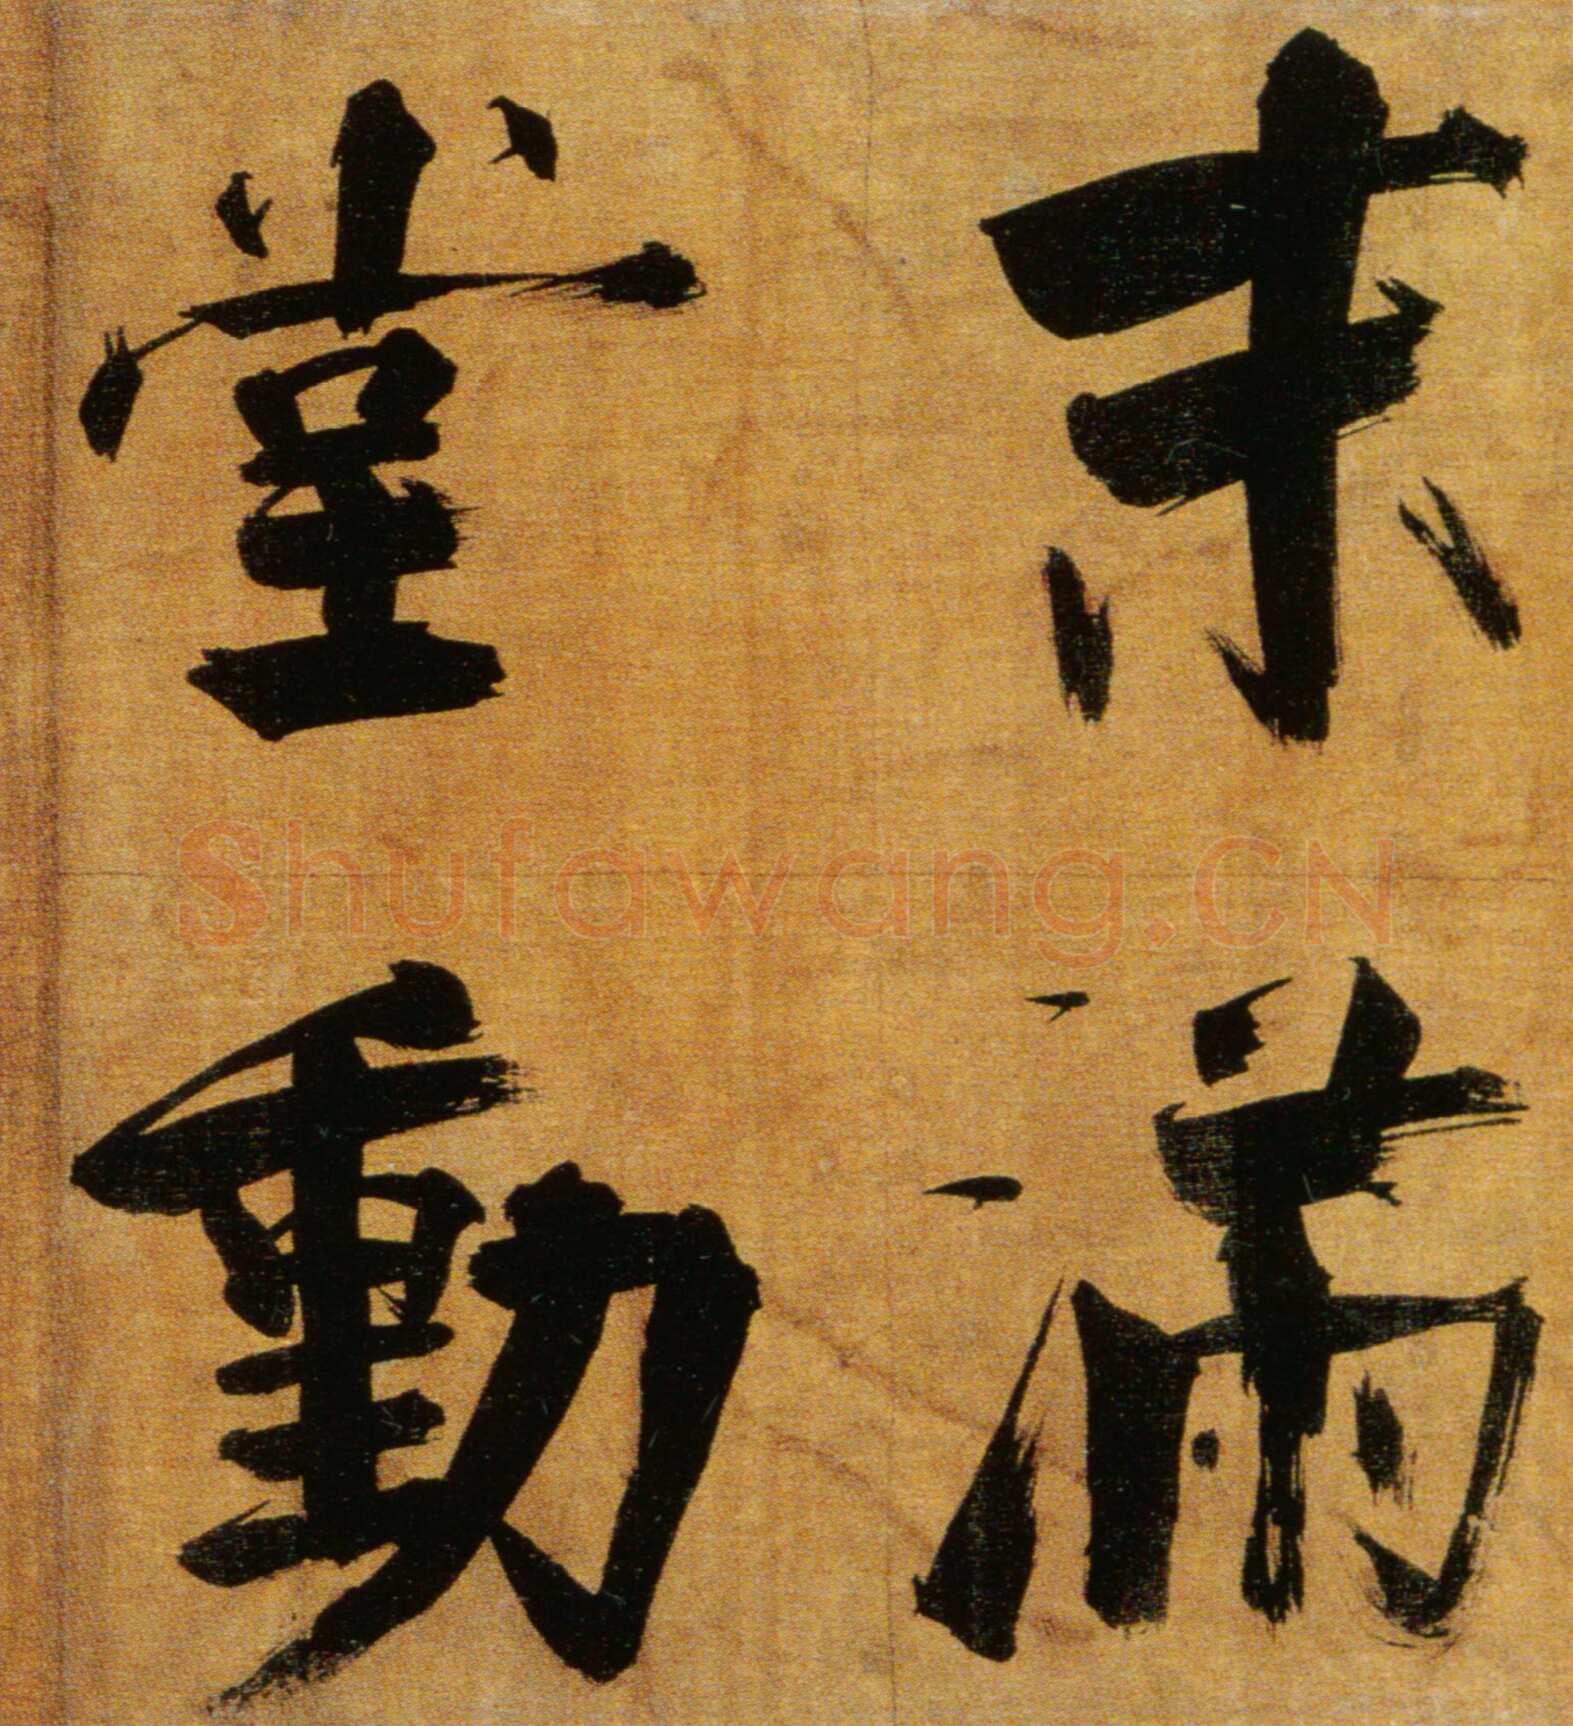 末滿
堂動
Shufawang.CN